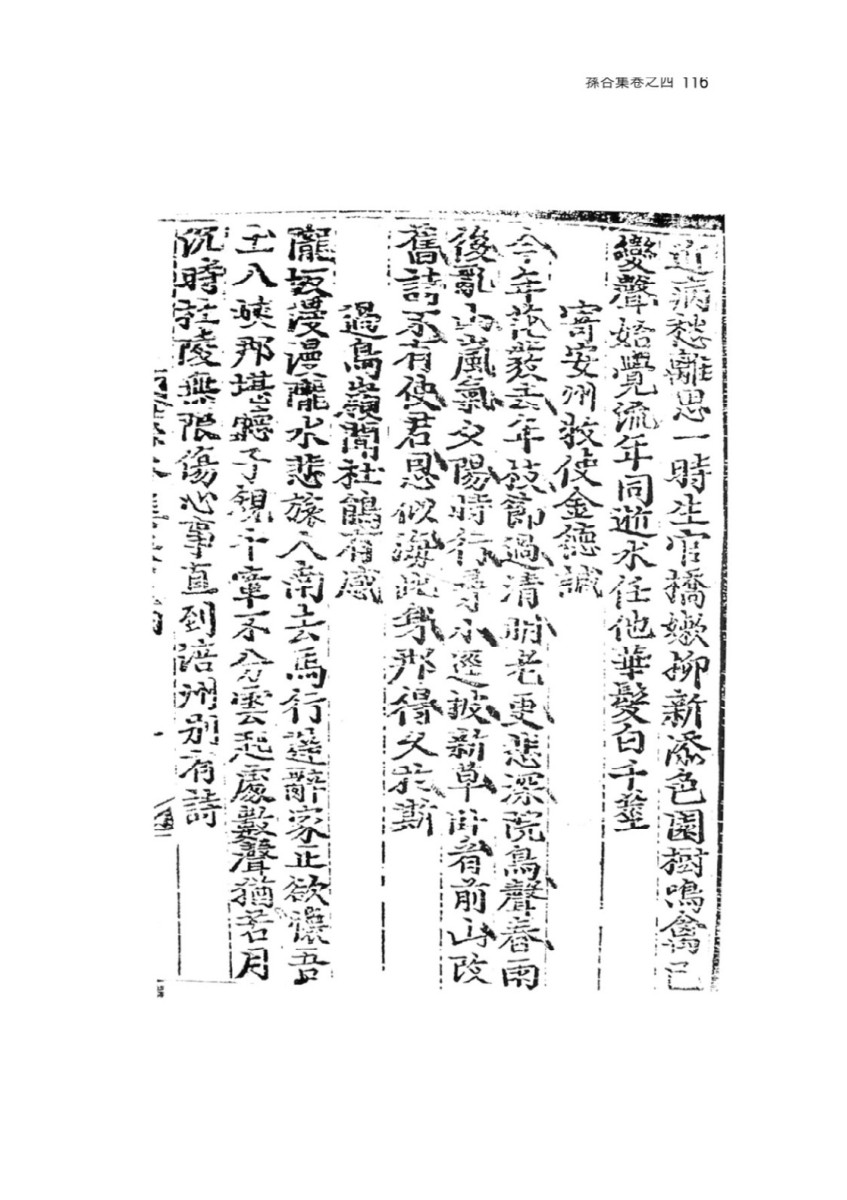 孫谷集卷之四 116
近病愁離思一時生官橋嫩柳新添色園樹鳴禽已
變聲始覺流年同逝水任他華髮白千莖
寄安州牧使金德諴
今年花發去年枝節過淸明老更悲深院鳥聲春雨
後亂山嵐氣夕陽時行尋小逕披新草臥看前山改
舊詩不有使君恩似海此身那得久於斯
過鳥嶺聞杜鵑有感
隴坂漫漫隴水悲旅人南去馬行遲辭家正欲懷吾
土入峽那堪聽子規千嶂不分雲起處數聲猶若月
沉時杜陵無限傷心事直到涪州別有詩